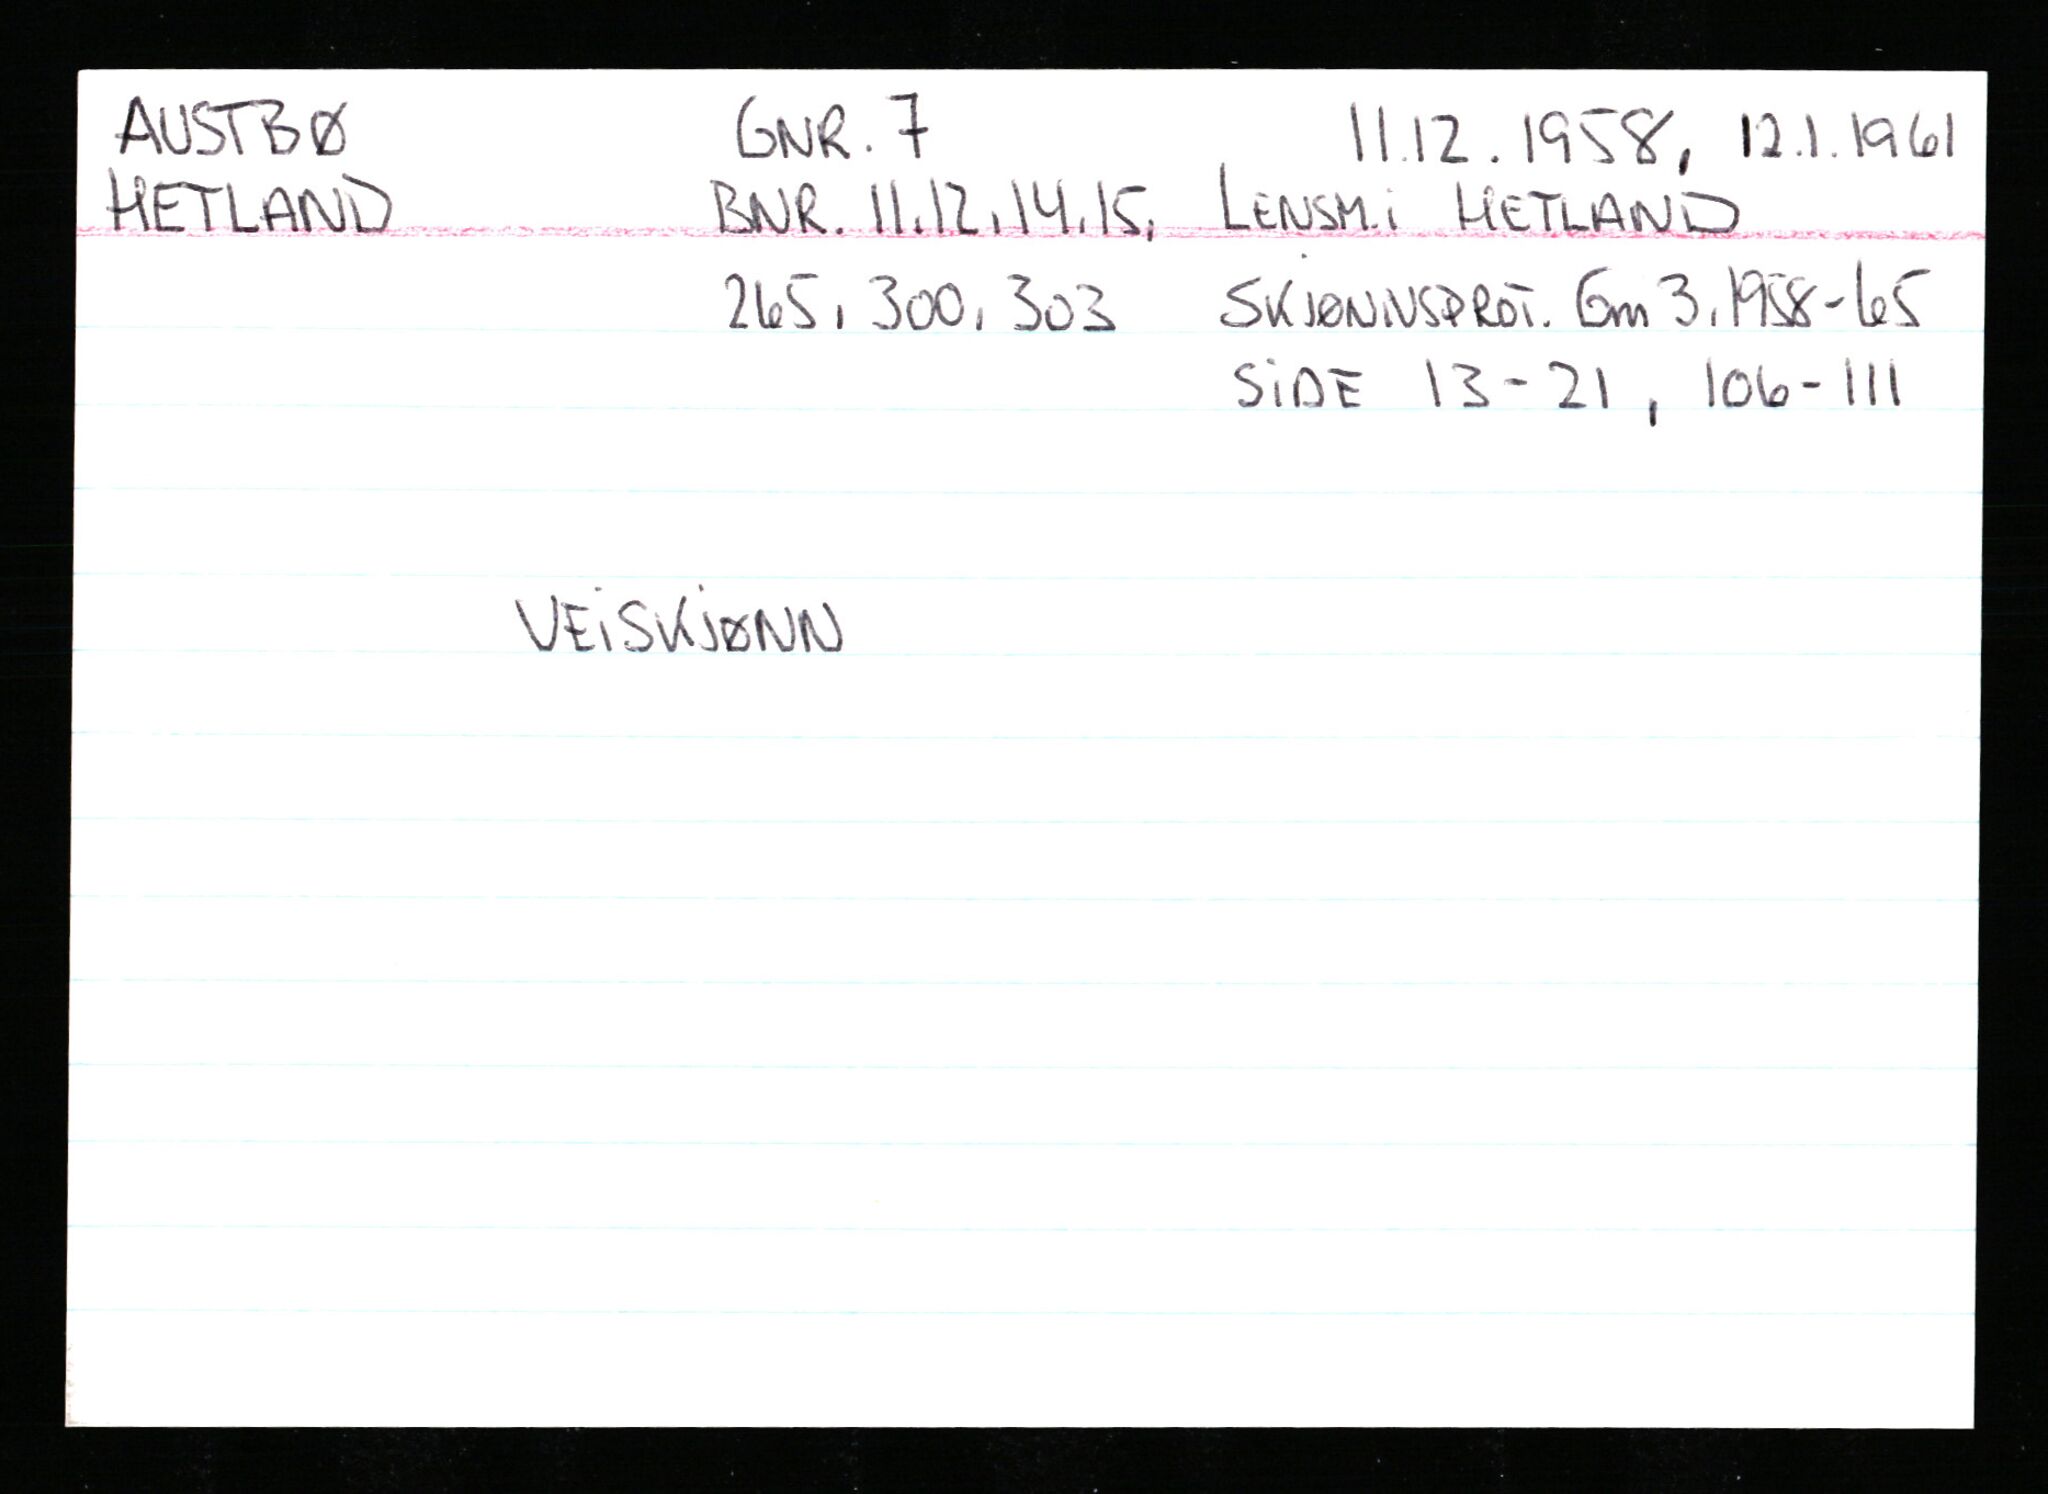 AUSTBØ GNR. 7 11.12.1958, 12.1.1961
HETLAND BNR. 11,12,14,15, LENSM.i HETLAND
265, 300, 303 SKJØNNSPROT. Gm 3, 1958-65
SiDE 13-21, 106-111
VEiSKJØNN